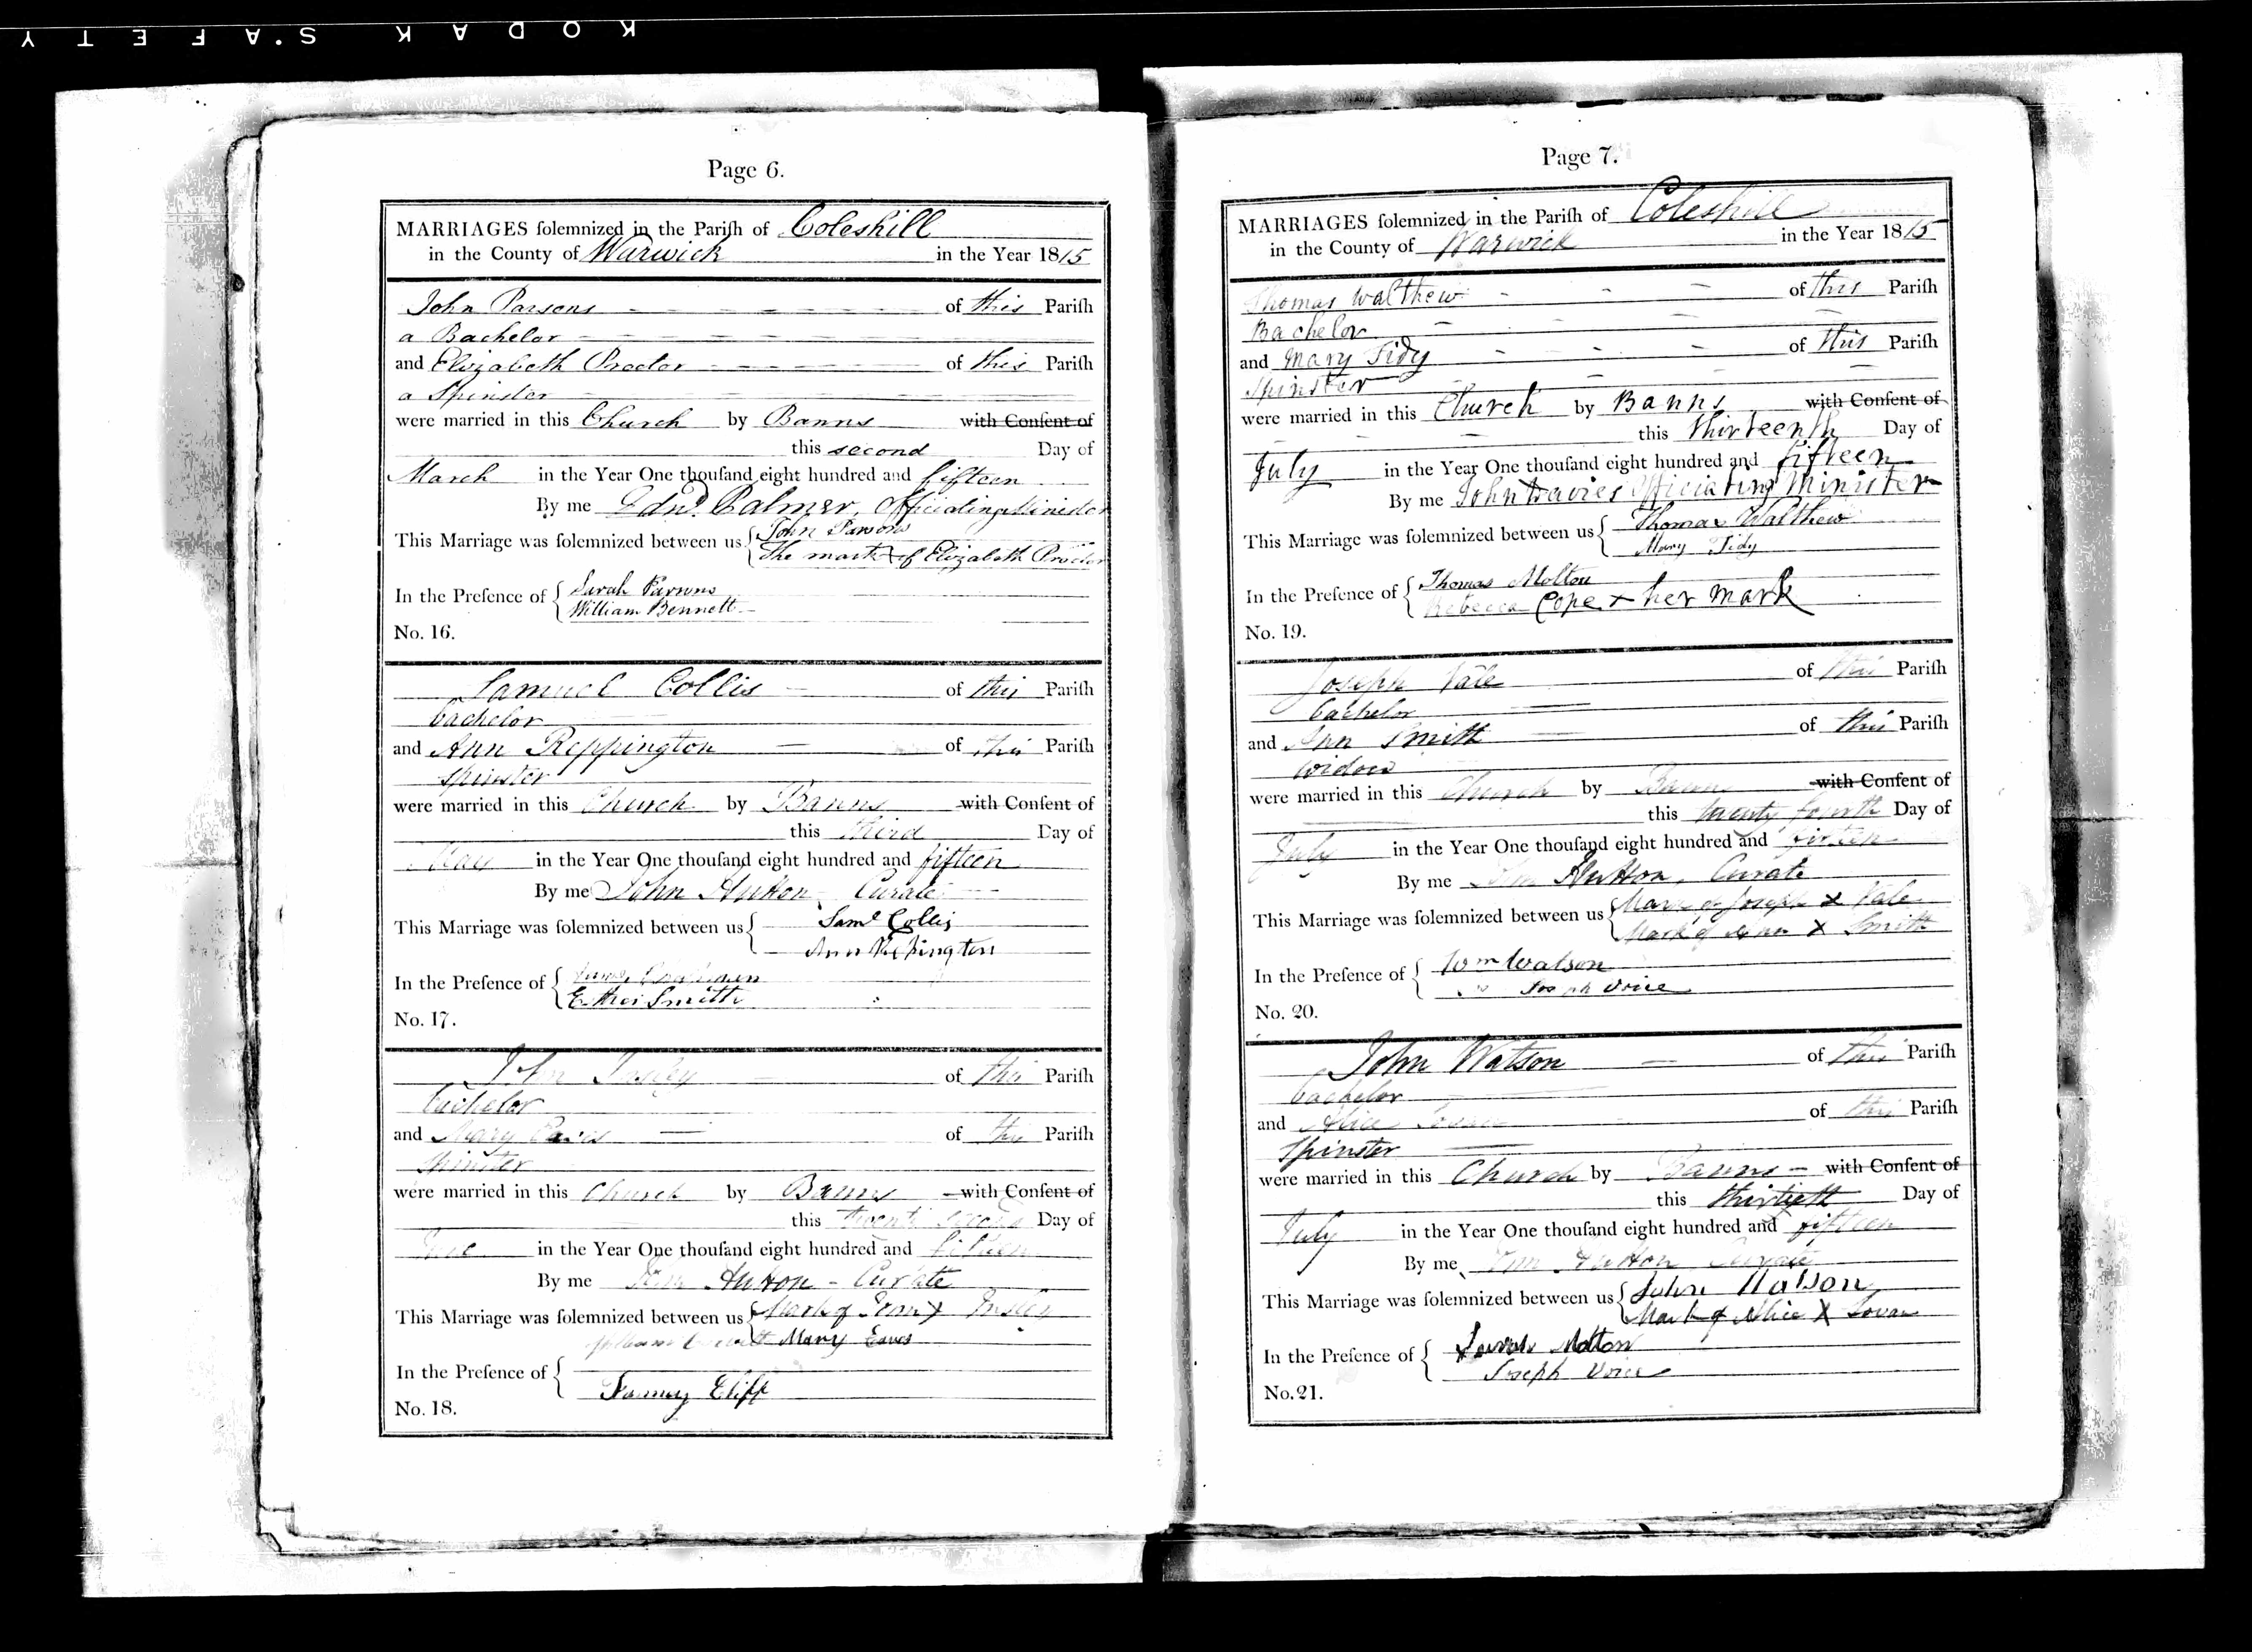 KODAK SAFETY
Page 6.
MARRIAGES ſolemnized in the Pariſh of Coleshill
in the County of Warwick in the Year 1815
John Parsons of this Pariſh
a Bachelor
and Elizabeth Proctor of this Pariſh
a Spinster
were married in this Church by Banns with Conſent of
this second Day of
March in the Year One thouſand eight hundred and fifteen
By me Edwd. Palmer, Officiating Minister
This Marriage was ſolemnized between us John Parsons
The mark X of Elizabeth Proctor
In the Preſence of Sarah Parsons
William Bennett
No. 16.
Samuel Collis of this Pariſh
bachelor
and Ann Reppington of this Pariſh
spinster
were married in this Church by Banns with Conſent of
this third Day of
in the Year One thouſand eight hundred and fifteen
By me John Hutton Curate
This Marriage was ſolemnized between us Saml Collis
Ann Reppington
In the Preſence of
Esther Smith
No. 17.
John of this Pariſh
bachelor
and Mary of this Pariſh
spinster
were married in this Church by Banns with Conſent of
this twenty second Day of
June in the Year One thouſand eight hundred and fifteen
By me John Hutton - Curate
This Marriage was ſolemnized between us Mark of X
Mary Eaves
In the Preſence of
Fanny Cliff
No. 18.
Page 7.
MARRIAGES ſolemnized in the Pariſh of Coleshill
in the County of Warwick in the Year 1815
Thomas Walthew of this Pariſh
Bachelor
and Mary Tidy of this Pariſh
Spinster
were married in this Church by Banns with Conſent of
this thirteenth Day of
July in the Year One thouſand eight hundred and fifteen
By me John Davies Officiating Minister
This Marriage was ſolemnized between us Thomas Walthew
Mary Tidy
In the Preſence of Thomas Molton
Rebecca Cope x her mark
No. 19.
Joseph Vale of this Pariſh
bachelor
and Ann Smith of this Pariſh
widow
were married in this Church by Banns with Conſent of
this twenty fourth Day of
July in the Year One thouſand eight hundred and fifteen
By me Hutton, Curate
This Marriage was ſolemnized between us Mark of Joseph X Vale
Mark of Ann X Smith
In the Preſence of Wm Watson
Joseph Voice
No. 20.
John Watson of this Pariſh
bachelor
and Alice of this Pariſh
Spinster
were married in this Church by Banns with Conſent of
this thirtieth Day of
July in the Year One thouſand eight hundred and fifteen
By me Hutton Curate
This Marriage was ſolemnized between us John Watson
Mark of Alice X
In the Preſence of Sarah Molton
Joseph Voice
No. 21.